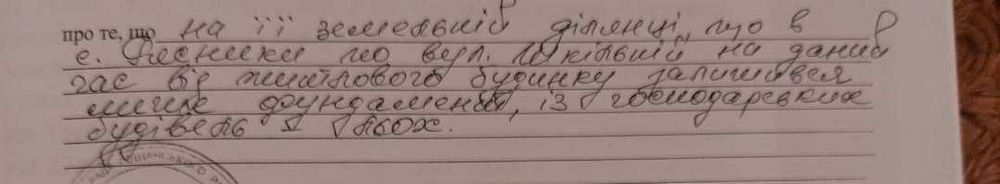 про те, що на її земельній ділянці, що в
с. Лесники по вул. Шкільній на даний
час від житлового будинку залишився
лише фундамент, із господарських
будівель льох.